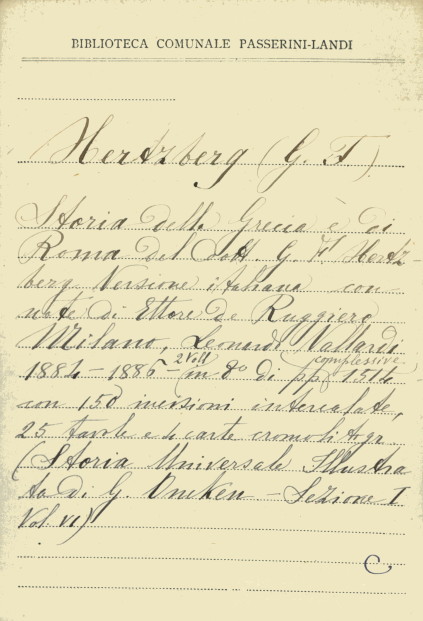 BIBLIOTECA COMUNALE PASSERINI-LANDI
Hertzberg (G. F)
Storia della Grecia e di
Roma del Dott. G. F Hertz-
berg Versione italiana con
note di Ettore De Ruggiero
Milano, Leonardi Vallardi
1884-1886- 2 Voll in 8° di pp complessive 1514
con 150 incisioni intercalate,
25 tavole e 4 carte cromolitogr.
(Storia Universale Illustra
ta di G. Oncken - Sezione I
Vol. VI)
C